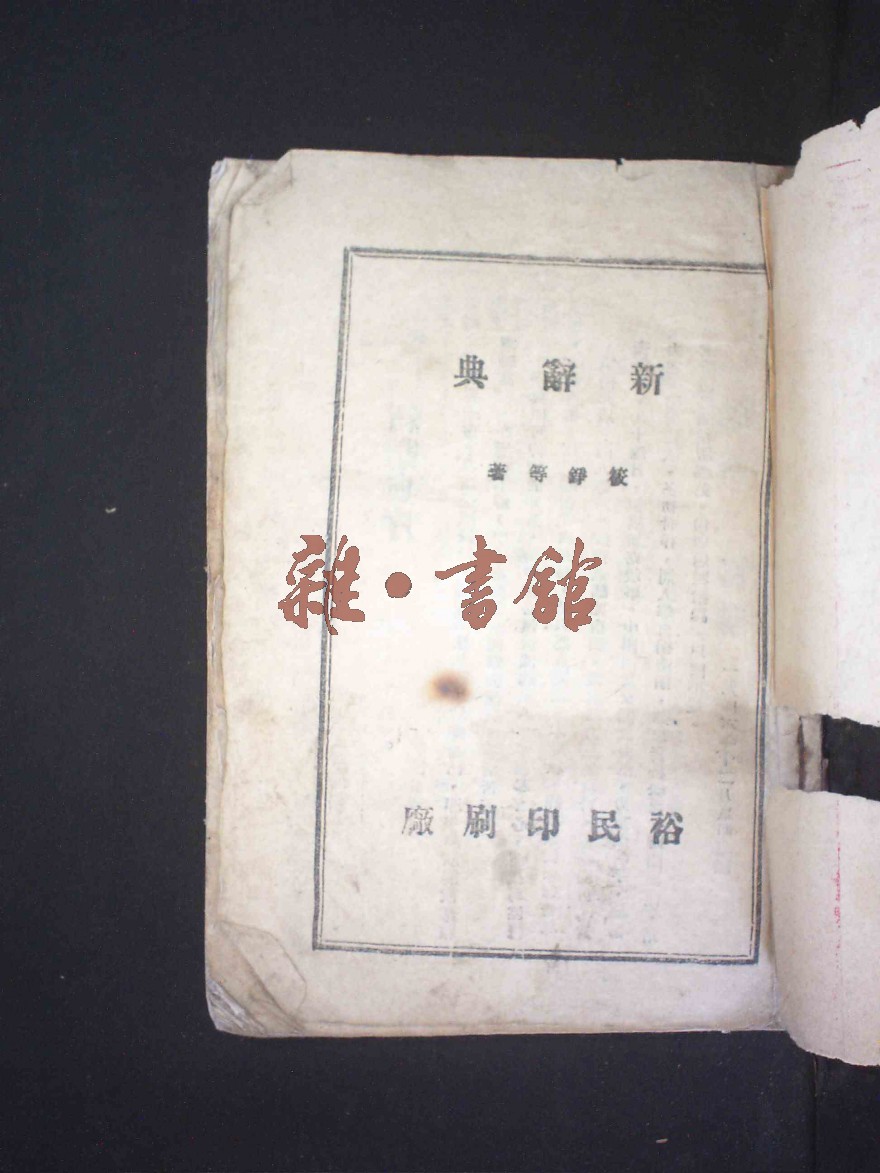 新辭典
筱錚等著
雜·書館
裕民印刷廠